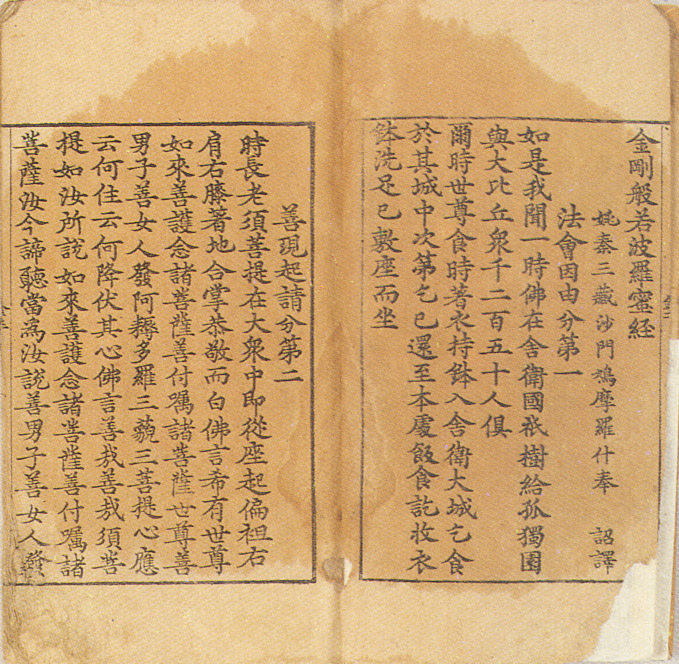 金剛般若波羅蜜經
姚秦三藏沙門鳩摩羅什奉 詔譯
法會因由分第一
如是我聞一時佛在舍衛國祇樹給孤獨園
與大比丘衆千二百五十人俱
爾時世尊食時著衣持鉢入舍衛大城乞食
於其城中次第乞已還至本處飯食訖收衣
鉢洗足已敷座而坐
善現起請分第二
時長老須菩提在大衆中即從座起偏袒右
肩右膝著地合掌恭敬而白佛言希有世尊
如來善護念諸菩薩善付囑諸菩薩世尊善
男子善女人發阿耨多羅三藐三菩提心應
云何住云何降伏其心佛言善哉善哉須菩
提如汝所說如來善護念諸菩薩善付囑諸
菩薩汝今諦聽當爲汝說善男子善女人發